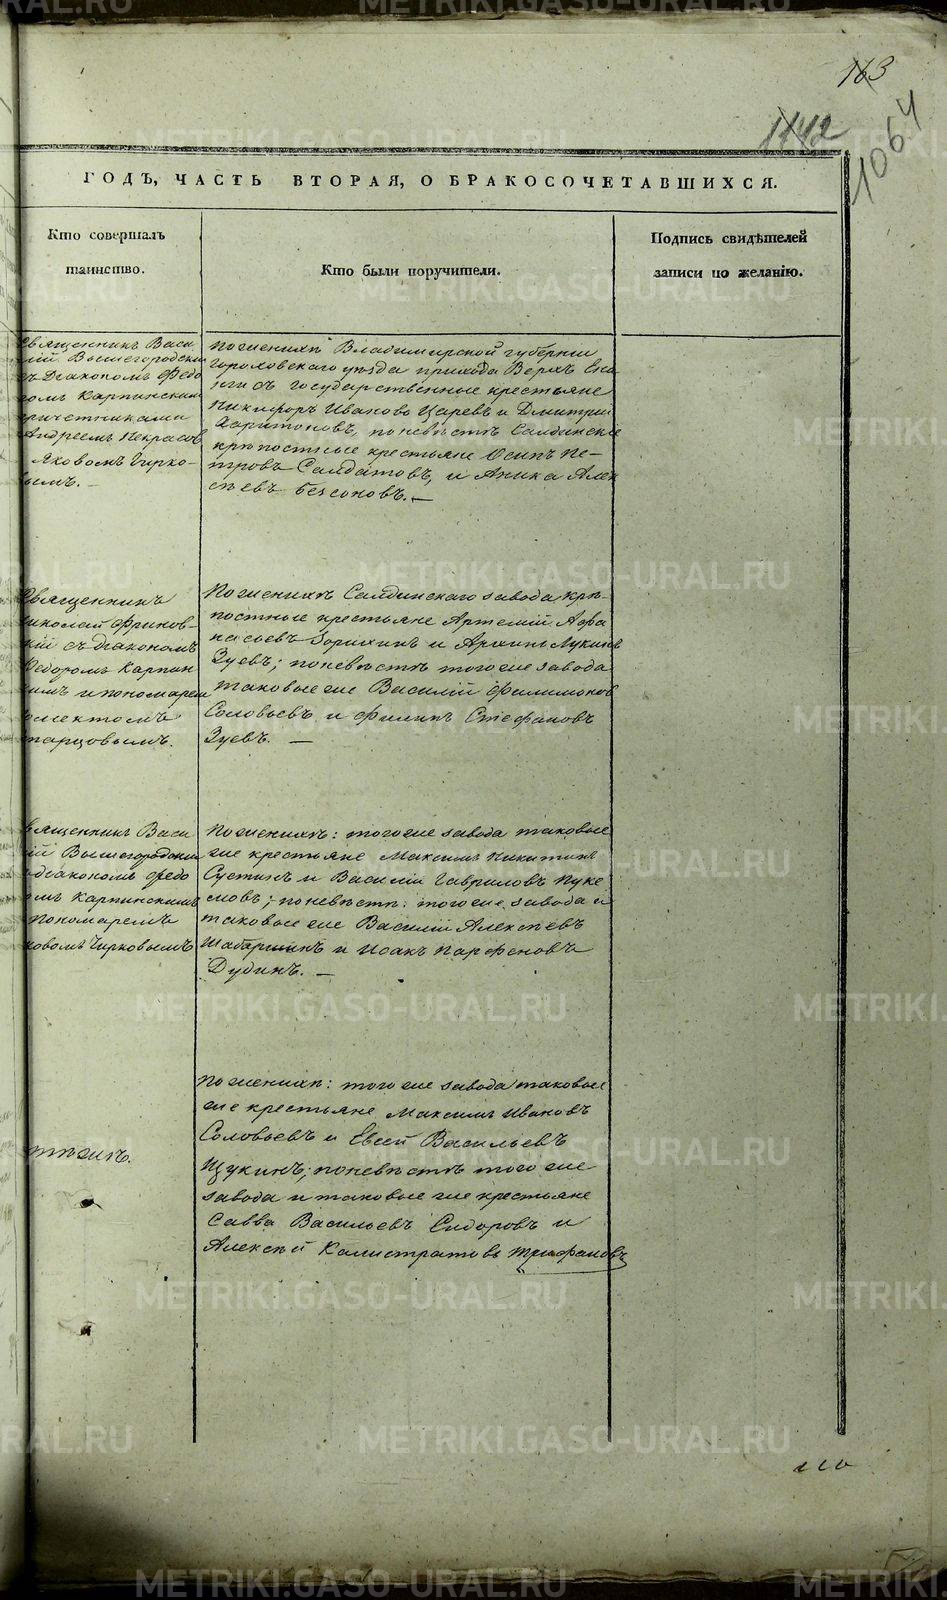 163
1142
1064
ГОДЪ, ЧАСТЬ ВТОРАЯ, О БРАКОСОЧЕТАВШИХСЯ.
Кто совершалъ
таинство.
Кто были поручители.
Подпись свидѣтелей
записи по желанію.
Священникъ Васи
лій Вышегородскій
съ Діакономъ Федо
ромъ Карпинскимъ
причетниками
Андреемъ Некрасов
Яковомъ Чирко-
вымъ. -
По женихѣ Владимирской губерніи
Гороховскаго уѣзда прихода Верхъ
государственные крестьяне
Никифоръ Ивановъ Царевъ и Дмитрій
Харитоновъ, по невѣстѣ Салдинскіе
крѣпостные крестьяне Осипъ Пе-
тровъ Салдатовъ, и Аника Алек
сѣевъ Безсоновъ. —
Священникъ
Николай Флринов-
кій съ діакономъ
Федоромъ Карпин
кимъ и пономарем
тарцовымъ.
По женихѣ Салдинскаго завода крѣ-
постные крестьяне Артемій Афа
насьевъ Зорихинъ и Архипъ Лукинъ
Зуевъ; по невѣстѣ того же завода
таковые же Василій Филимонов
Соловьевъ и Филипъ Стефановъ
Зуевъ. —
вященникъ Васи
лій Вышегородскій
діакономъ Федо
омъ Карпинскимъ
пономаремъ
ковомъ Чирковымъ
По женихѣ: того же завода таковые
же крестьяне Максимъ Никитинъ
Сустинъ и Василій Гавриловъ Пуке
мовъ; по невѣстѣ: того же завода и
таковые же Василій Алексѣевъ
Шабаршинъ и Исакъ Парфеновъ
Дудинъ. —
тѣже.
По женихѣ: того же завода таковые
же крестьяне Максимъ Ивановъ
Соловьевъ и Евсей Васильевъ
Щукинъ; по невѣстѣ того же
завода и таковые же крестьяне
Савва Васильевъ Сидоровъ и
Алексѣй Калистратовъ Трифановъ
METRIKI.GASO-URAL.RU